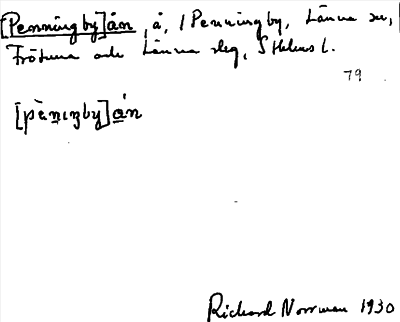 [Penningby]ån, å, i Penningby, Länna sn,
Frötuna och Länna slg, Sthlms l.
79
[pèniŋby]án
Richard Norrman 1930